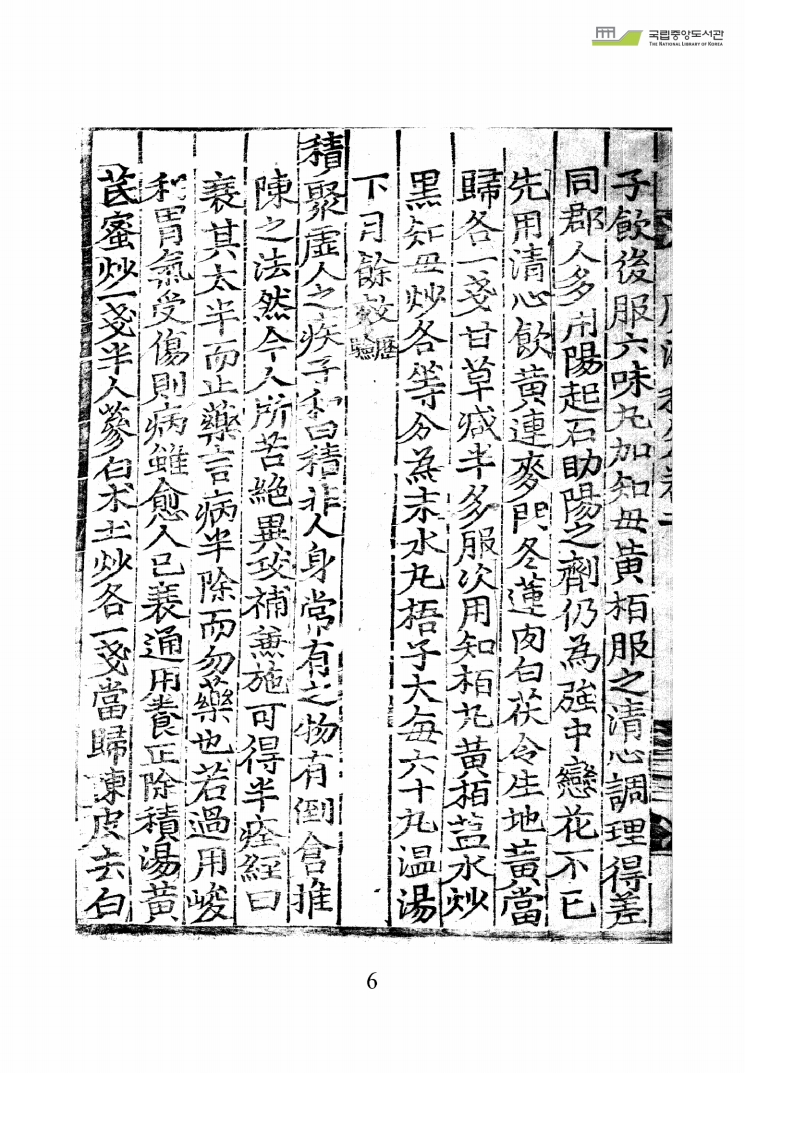 국립중앙도서관
THE NATIONAL LIBRARY OF KOREA
子飮後服六味丸加知母黃栢服之淸心調理得差
同郡人多用陽起石助陽之劑仍爲强中戀花不已
先用清心飮黃連麥門冬蓮肉白茯令生地黃當
歸各一戔甘草减半多服次用知栢丸黃栢盐水炒
黑知母炒各等分為末水丸梧子大每六十九温湯
下月餘效歷驗
積聚虛人之疾子和曰積非人身常有之物有倒倉推
陳之法然今人所苦絶異攻補兼施可得半痊經曰
衰其太半而止藥言病半除而勿藥也若過用峻
利胃氣受傷則病雖愈人已衰通用養正除積湯黃
芪蜜炒一戔半人蔘白朮土炒各一戔當歸陳皮去白
6